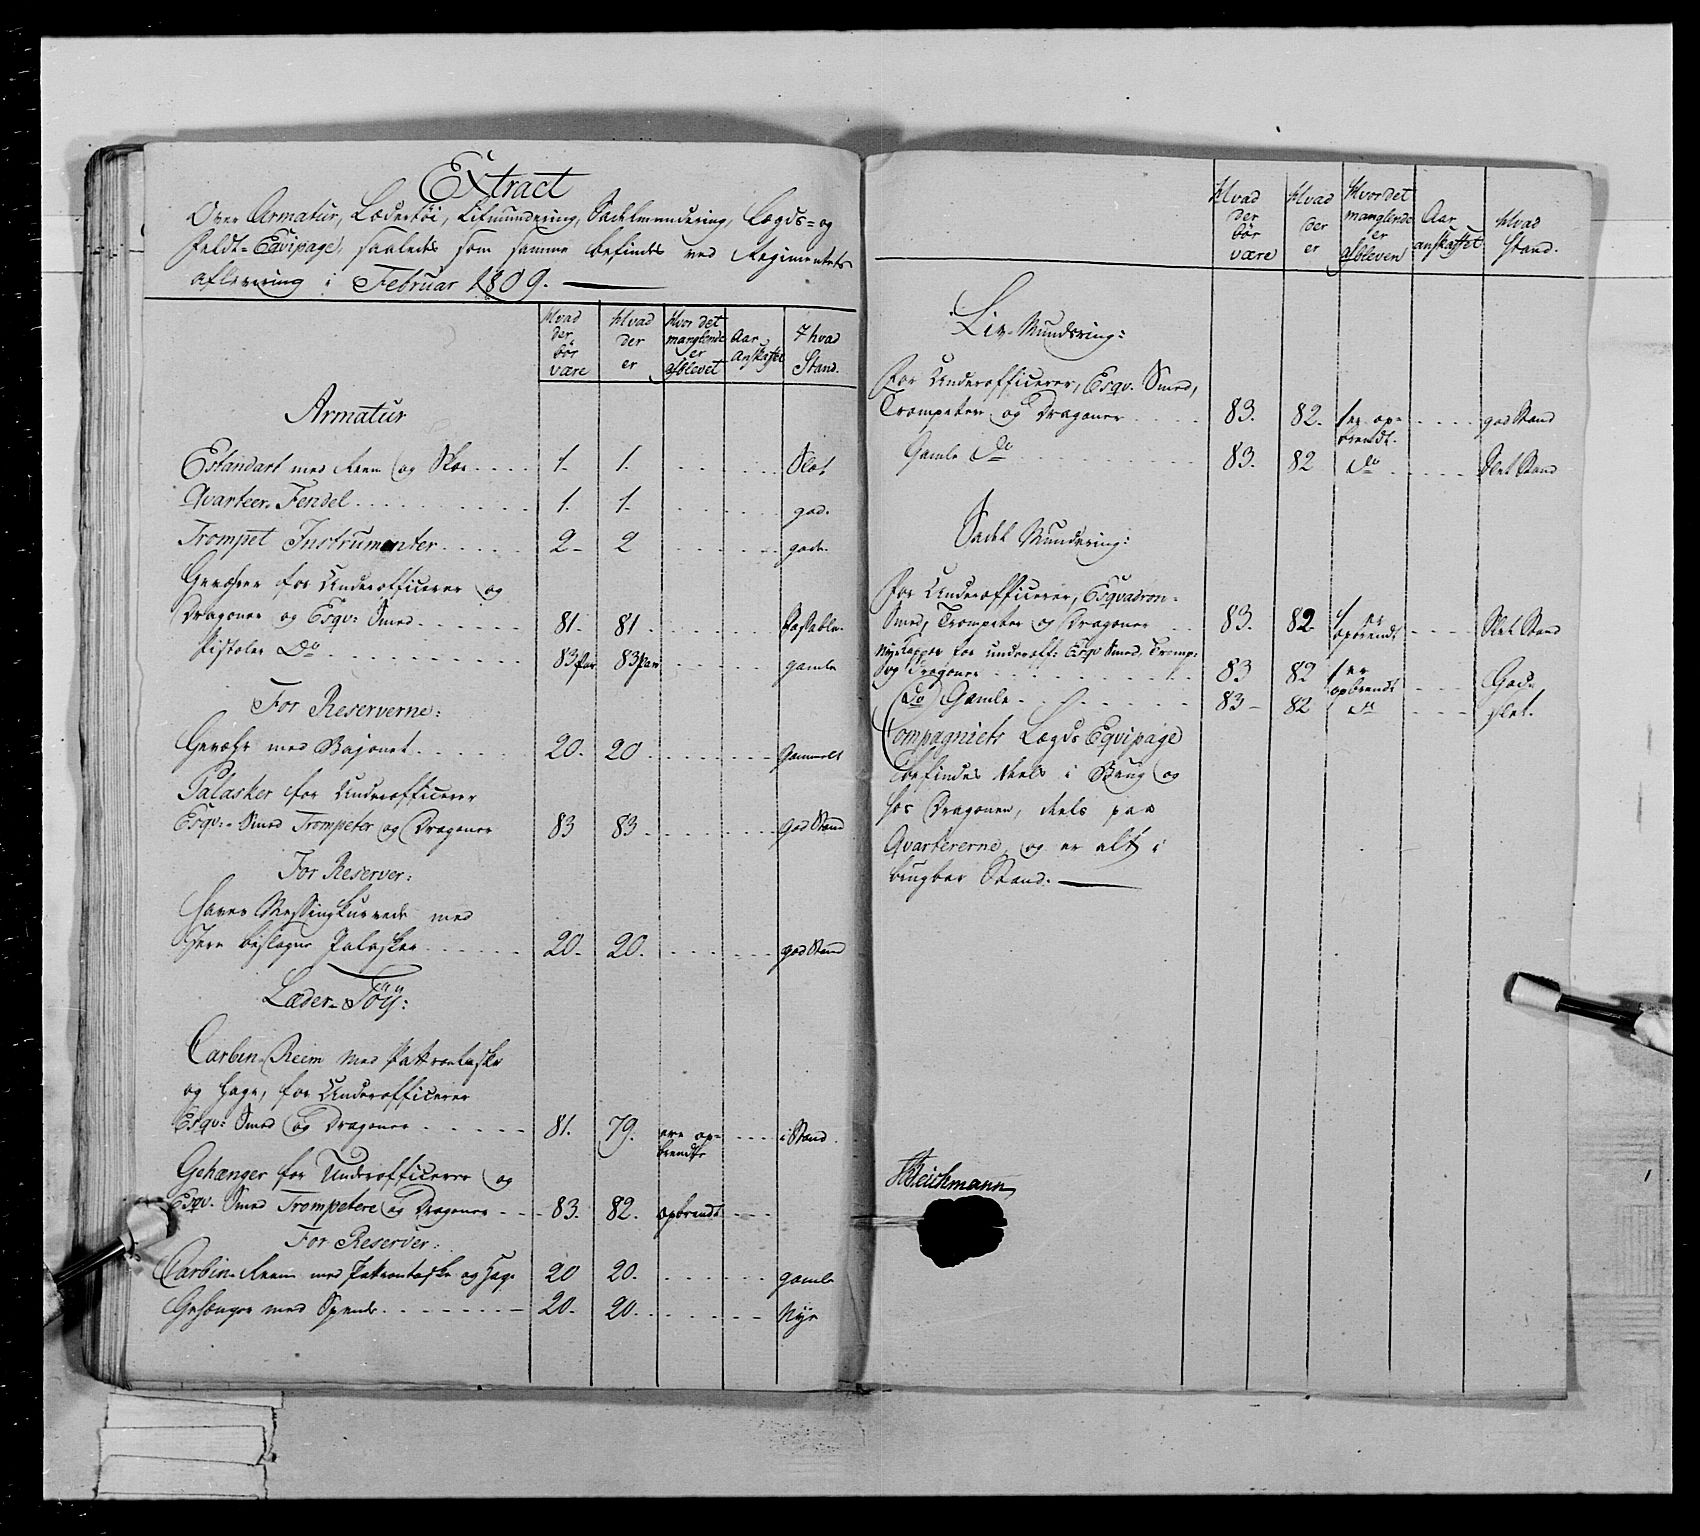 Extract
Over Armatur, Lædertøi, Lifmundering, Sadelmundering, Lægds- og
Feldt-Eqvipage, saaledes som samme befindes ved Regimentets
aflevering i Februar 1809.
Hvad der bør være | Hvad der er | Hvor det manglende er afblevet | Aar anskaffet | I hvad Stand.
Armatur
Estandart med Reem og Skoe | 1. | 1. | Slet
Qvarteer-Fendel | 1. | 1. | god.
Trompet Instrumenter | 2 | 2 | gode.
Geværer for Underofficerer og
Dragoner og Esqv: Smed | 81. | 81. | Passable
Pistoler Do | 83 Par | 83 Par | gamle
For Reserverne:
Gevæhr med Bajonet | 20. | 20 | Gammelt
Palasker for Underofficerer
Esqv:- Smed Trompeter og Dragoner | 83 | 83 | god Stand
For Reserver:
med
Jern beslagne Palasker | 20. | 20. | god Stand
Læder-Töÿ:
Carbin-Reem med Patrontaske
og Hage, for Underofficerer
Esqv: Smed og Dragoner | 81. | 79. | ere opbrendte | i Stand.
Gehænger for Underofficerer og
Esqv. Smed Trompetere og Dragoner | 83. | 82. | opbrendt
For Reserver:
Carbin-Reem med Patrontaske og Hage | 20 | 20. | gamle
Gehænger med Spende | 20. | 20. | Nye
Hvad der bør være | Hvad der er | Hvor det manglende er afbleven | Aar anskaffet | Hvad Stand.
Liv-Mundering:
For Underofficerer, Esqv. Smed,
Trompeter og Dragoner | 83. | 82. | 1 er opbrendt. | god Stand
Gamle Do | 83. | 82 | do | Slet Stand
Sadel Mundering:
For Underofficerer, Esqvadron-
Smed, Trompeter og Dragoner | 83. | 82. | 1 er opbrendt | Slet Stand
Nye Kapper for underoff: Esqv Smed, Tromp:
og Dragoner | 83 | 82 | 1 er opbrendt | Gode
Do Gamle | 83 | 82 | do | slet.
Compagniets Lægds Eqvipage
befindes deels i Brug og
hos Dragonen, deels paa
Qvartererne, og er alt i
brugbar Stand.
Teichmann